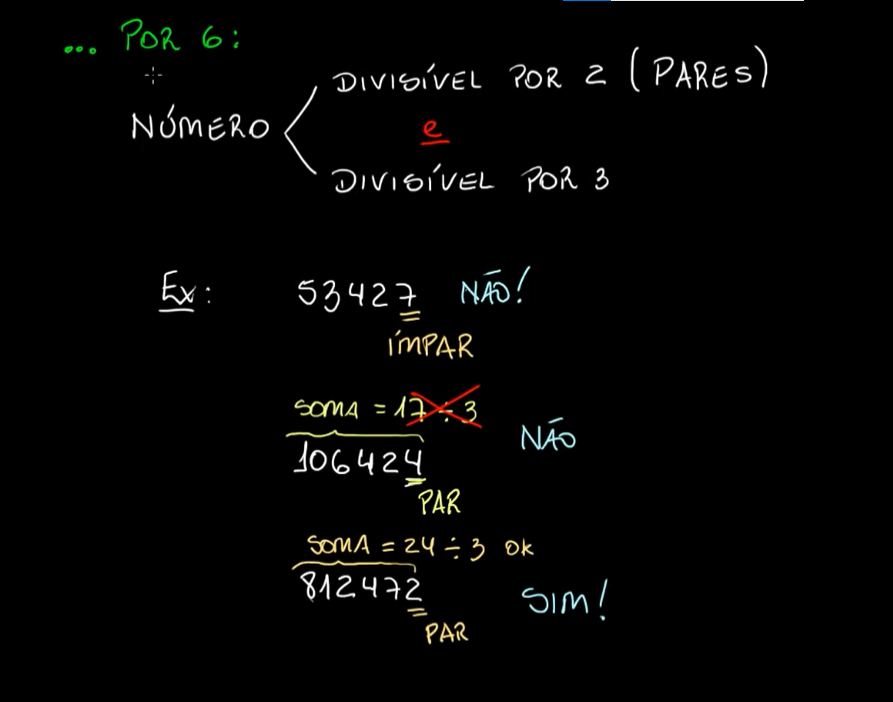 ... POR 6:
DIVISÍVEL POR 2 (PARES)
NÚMERO
e
DIVISÍVEL POR 3
Ex: 53427 NÃO!
ÍMPAR
SOMA = 17 ÷ 3
106424 NÃO
PAR
SOMA = 24 ÷ 3 OK
812472 SIM!
PAR